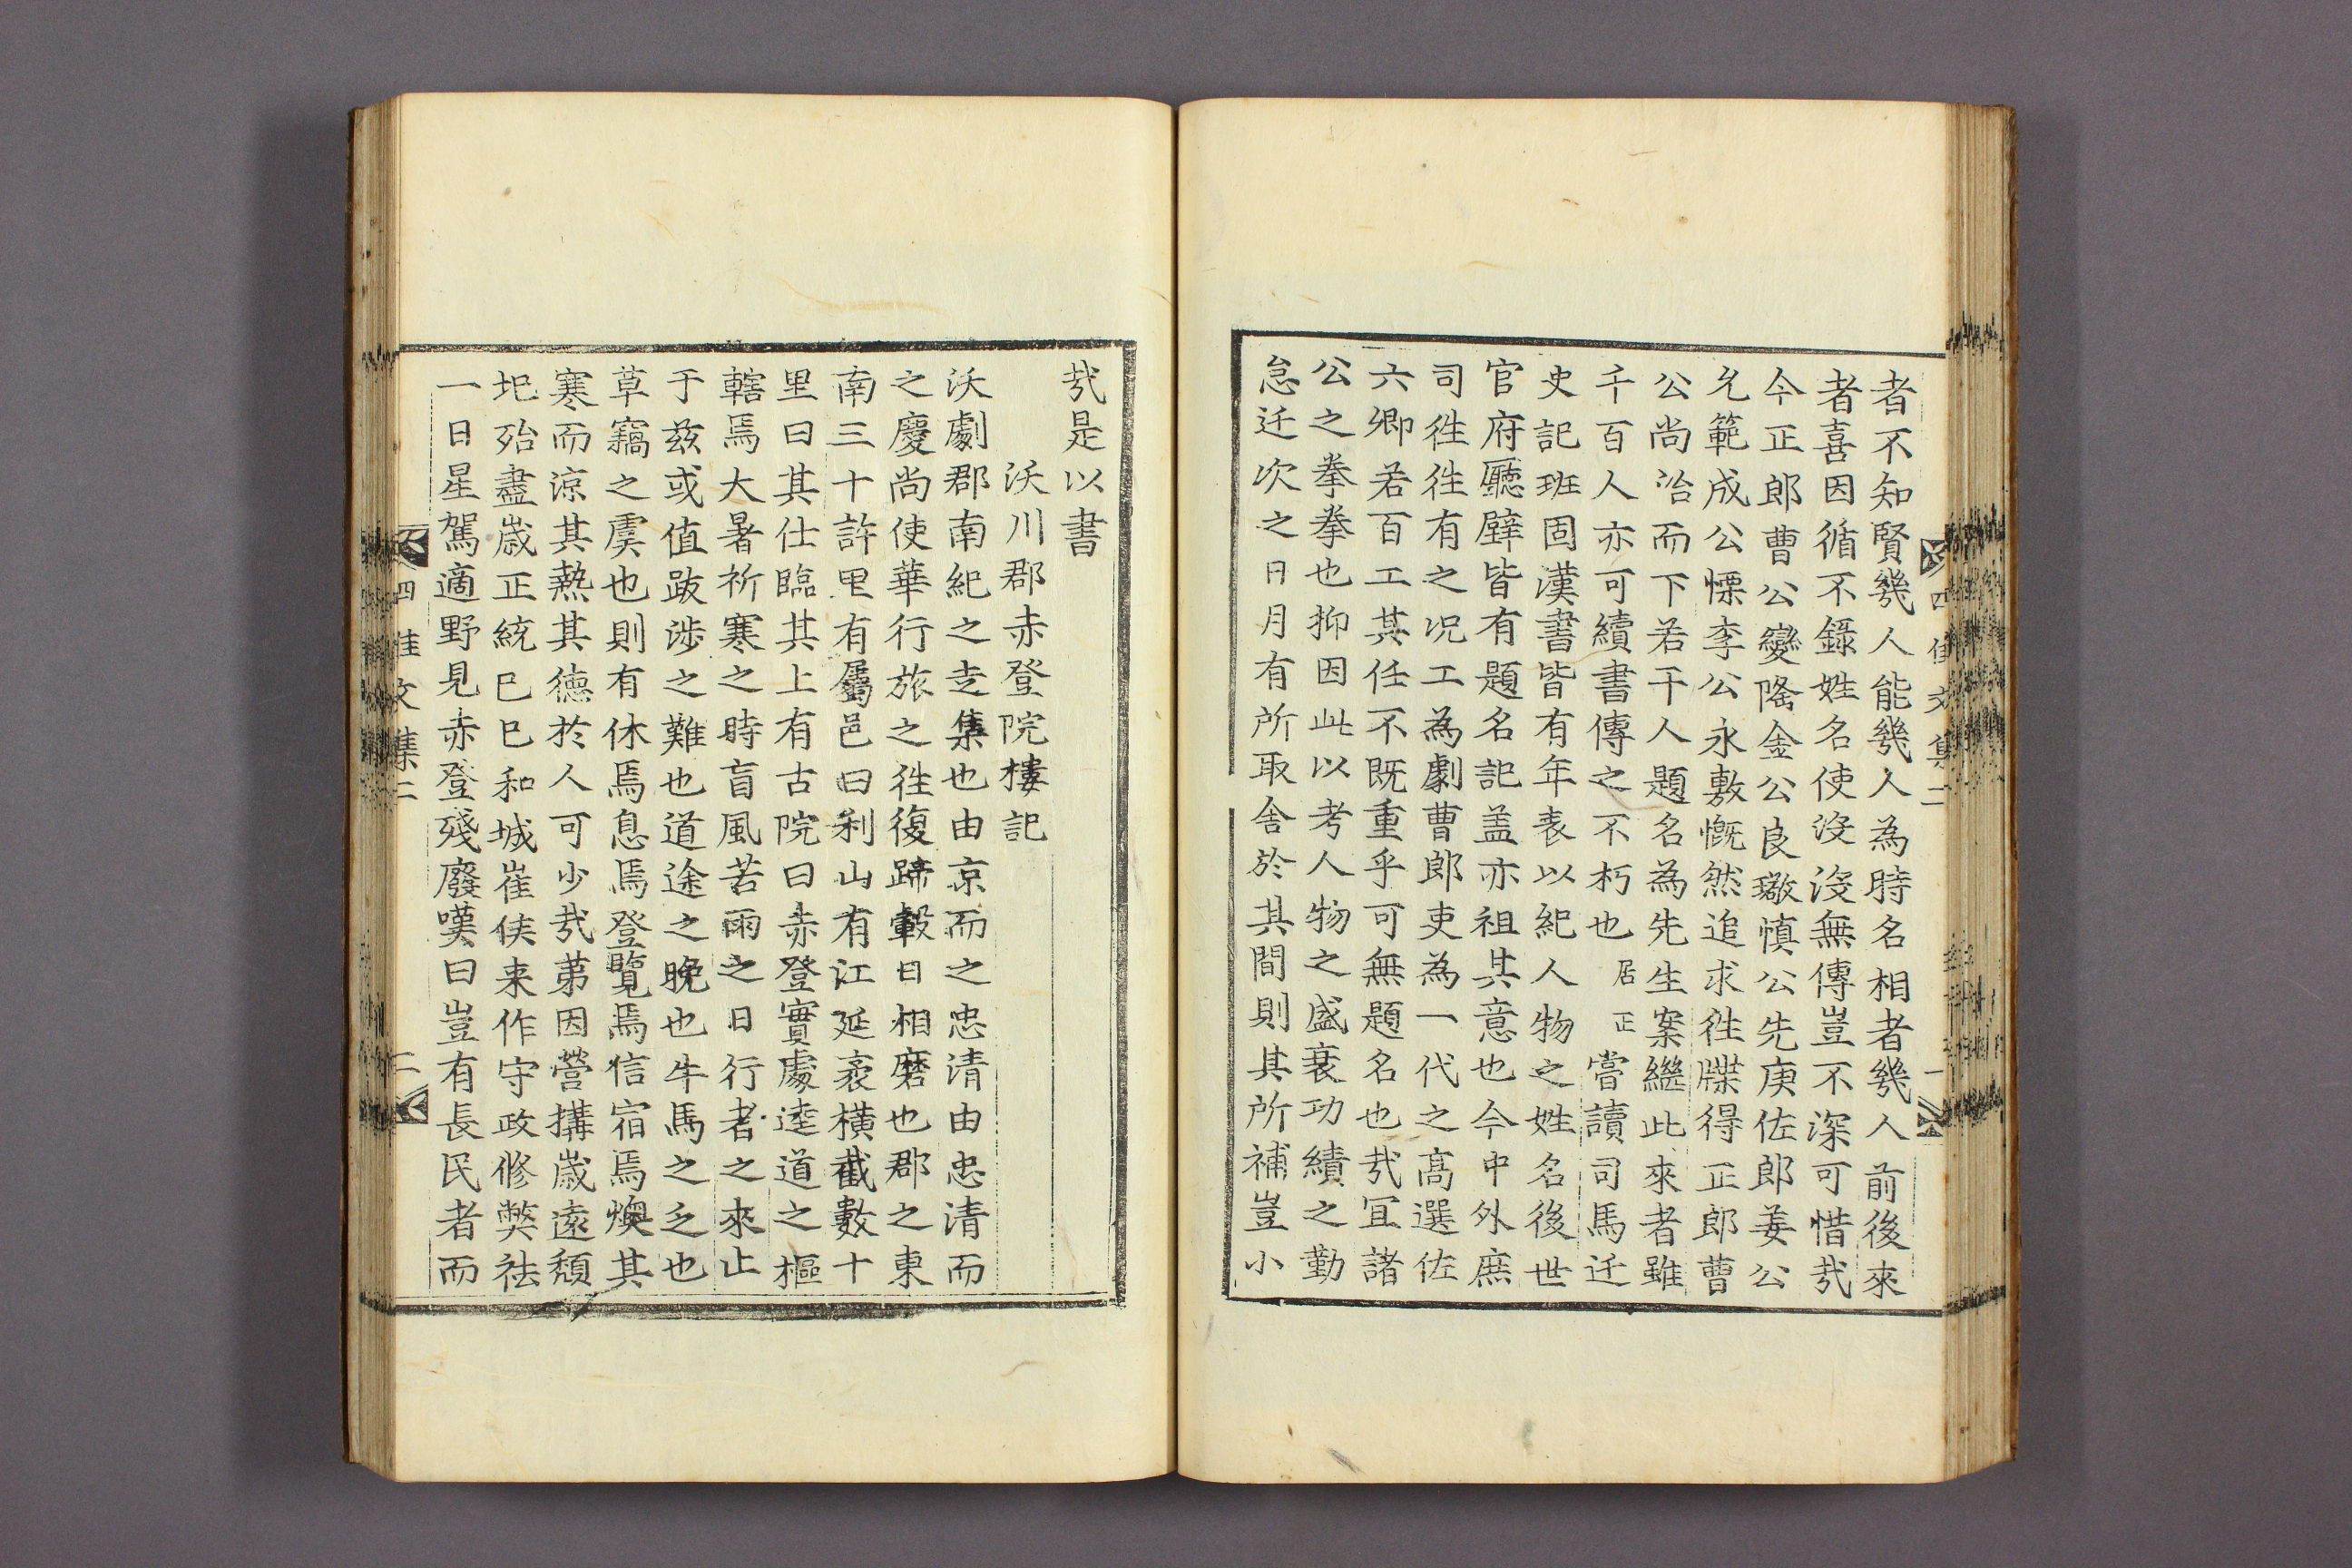 者不知賢幾人能幾人為時名相者幾人前後來
者喜因循不錄姓名使沒沒無傳豈不深可惜㢤
今正郎曹公變隆金公良璥慎公先庚佐郎姜公
允範成公慄李公永敷慨然追求徃牒得正郎曹
公尚治而下若干人題名為先生案繼此來者雖
千百人亦可續書傳之不朽也居正嘗讀司馬迁
史記班固漢書皆有年表以紀人物之姓名後世
官府廳壁皆有題名記盖亦祖其意也今中外庶
司徃徃有之况工為劇曹郎吏為一代之髙選佐
六卿若百工其任不既重乎可無題名也㢤冝諸
公之拳拳也抑因此以考人物之盛衰功績之勤
怠迁次之日月有所取舍於其間則其所補豈小
四佳文集二 一
㢤是以書
沃川郡赤登院樓記
沃劇郡南紀之走集也由京而之忠清由忠清而
之慶尚使華行旅之徃復蹄轂日相磨也郡之東
南三十許里有屬邑曰利山有江延袤橫截數十
里曰其仕臨其上有古院曰赤登實處逵道之樞
轄焉大暑祈寒之時盲風苦雨之日行者之來止
于兹或值跋涉之難也道途之晚也牛馬之乏也
草竊之虞也則有休焉息焉登覽焉信宿焉燠其
寒而涼其熱其德於人可少㢤第因營搆歲遠頽
圮殆盡歲正統己巳和城崔侯来作守政修弊祛
一日星駕適野見赤登殘廢嘆曰豈有長民者而
四佳文集二 二